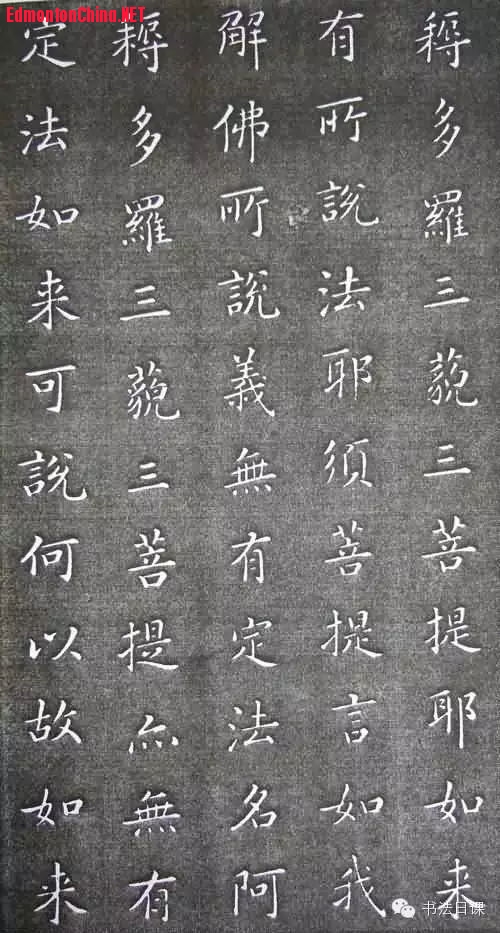 EdmontonChina.NET
耨多羅三藐三菩提耶如来
有所說法耶須菩提言如我
解佛所說義無有定法名阿
耨多羅三藐三菩提亦無有
定法如来可說何以故如来
书法日课